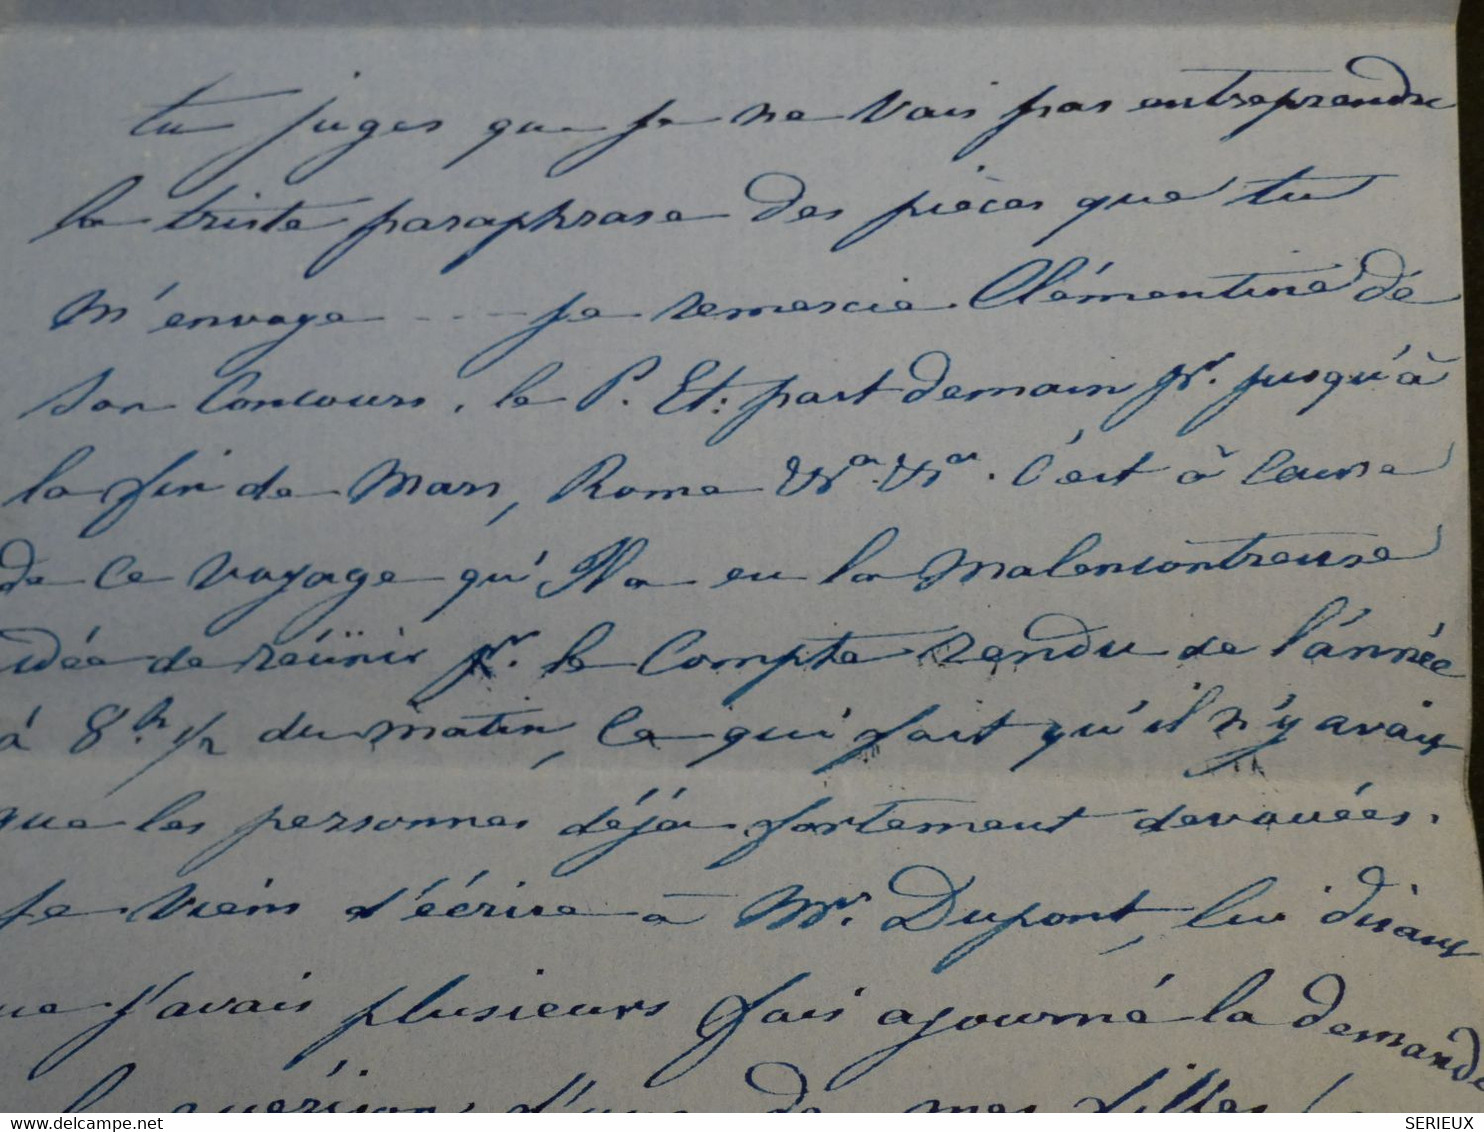 tu juges que je ne vais pas entreprendre
la triste paraphrase des pièces que tu
m'envoye .... je remercie Clémentine de
son concours. le P. Et: part demain pr. jusqu'à
la fin de Mars, Rome &a. &a. C'est à cause
de ce voyage qu'Il a eu la malencontreuse
idée de réünir pr. le compte rendu de l'année
à 8h. ½ du matin, ce qui fait qu'il n'y avait
que les personnes déjà fortement dévouées.
Je viens d'écrire à Mr. Dupont, lui disant
que j'avais plusieurs fois ajourné la demande
guérison d'une de mes filles
www.delcampe.net
SERIEUX